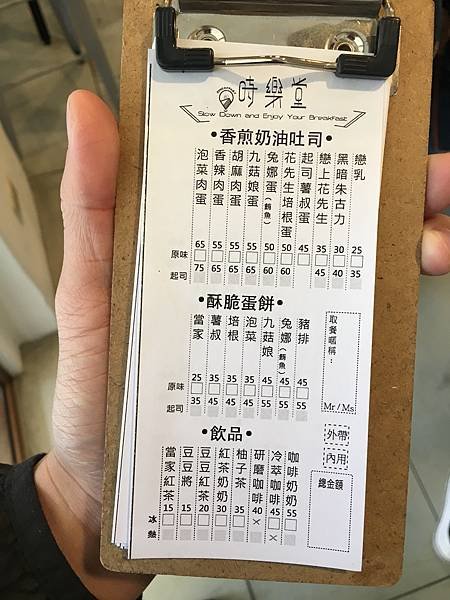 時樂堂
Slow Down and Enjoy Your Breakfast
•香煎奶油吐司•
戀乳
黑暗朱古力
戀上花先生
起司薯叔蛋
花先生培根蛋
兔娜蛋(鮪魚)
九菇娘蛋
胡麻肉蛋
香辣肉蛋
泡菜肉蛋
原味 65 55 55 55 50 50 45 35 30 25
起司 75 65 65 65 60 60 45 40 35
•酥脆蛋餅•
豬排
兔娜(鮪魚)
九菇娘
泡菜
培根
薯叔
當家
原味 25 35 35 45 45 45 45
起司 35 45 45 55 55 55 55
取餐暱稱：
Mr / Ms
外帶
內用
總金額
•飲品•
咖啡奶奶
冷萃咖啡
研磨咖啡
柚子茶
紅茶奶奶
豆豆紅茶
豆豆將
當家紅茶
15 15 20 30 35 40 45 55
冰
熱